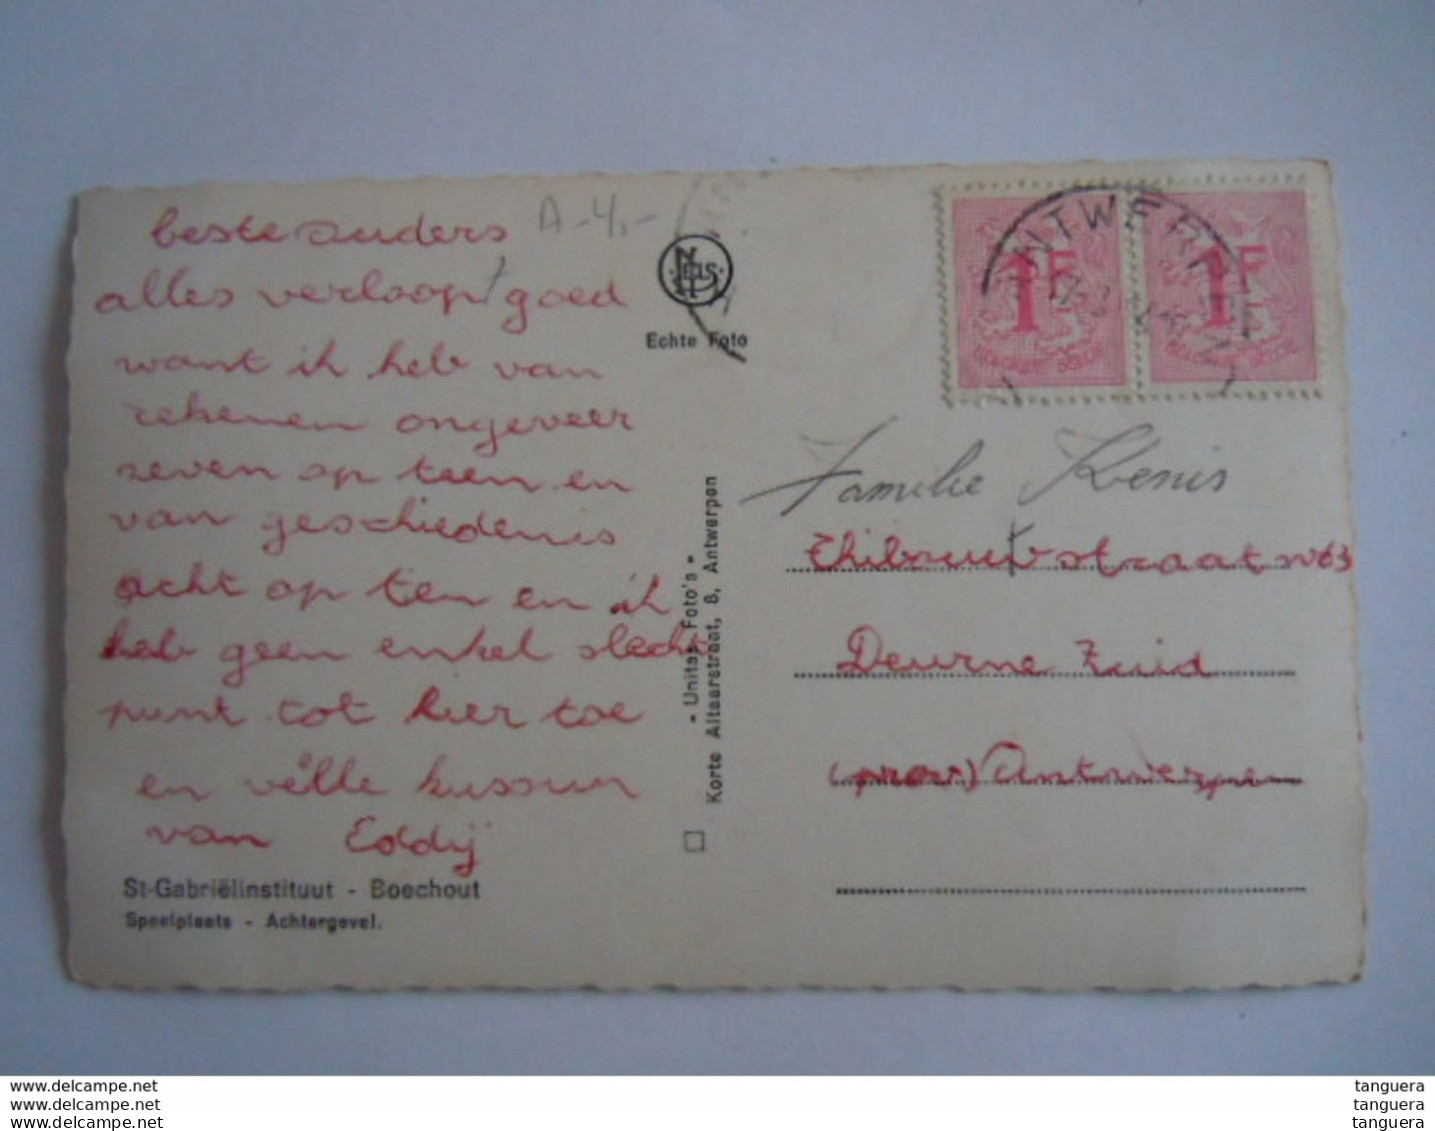 beste ouders
A-4,-
alles verloopt goed
want ik heb van
rekenen ongeveer
zeven op teen en
van geschiedenis
acht op ten en ik
heb geen enkel slecht
punt tot hier toe
en vélle kussun
van Eddij
St-Gabriëlinstituut - Boechout
Speelplaats - Achtergevel.
NELS
Echte Foto
- Unitas Foto's -
Korte Altaarstraat, 8, Antwerpen
ANTWERPEN
1F
1F
BELGIQUE BELGIE
Familie Kenis
Thibautstraat n63
Deurne Zuid
(prov) Antwerpen
www.delcampe.net
www.delcampe.net
www.delcampe.net
tanguera
tanguera
tanguera